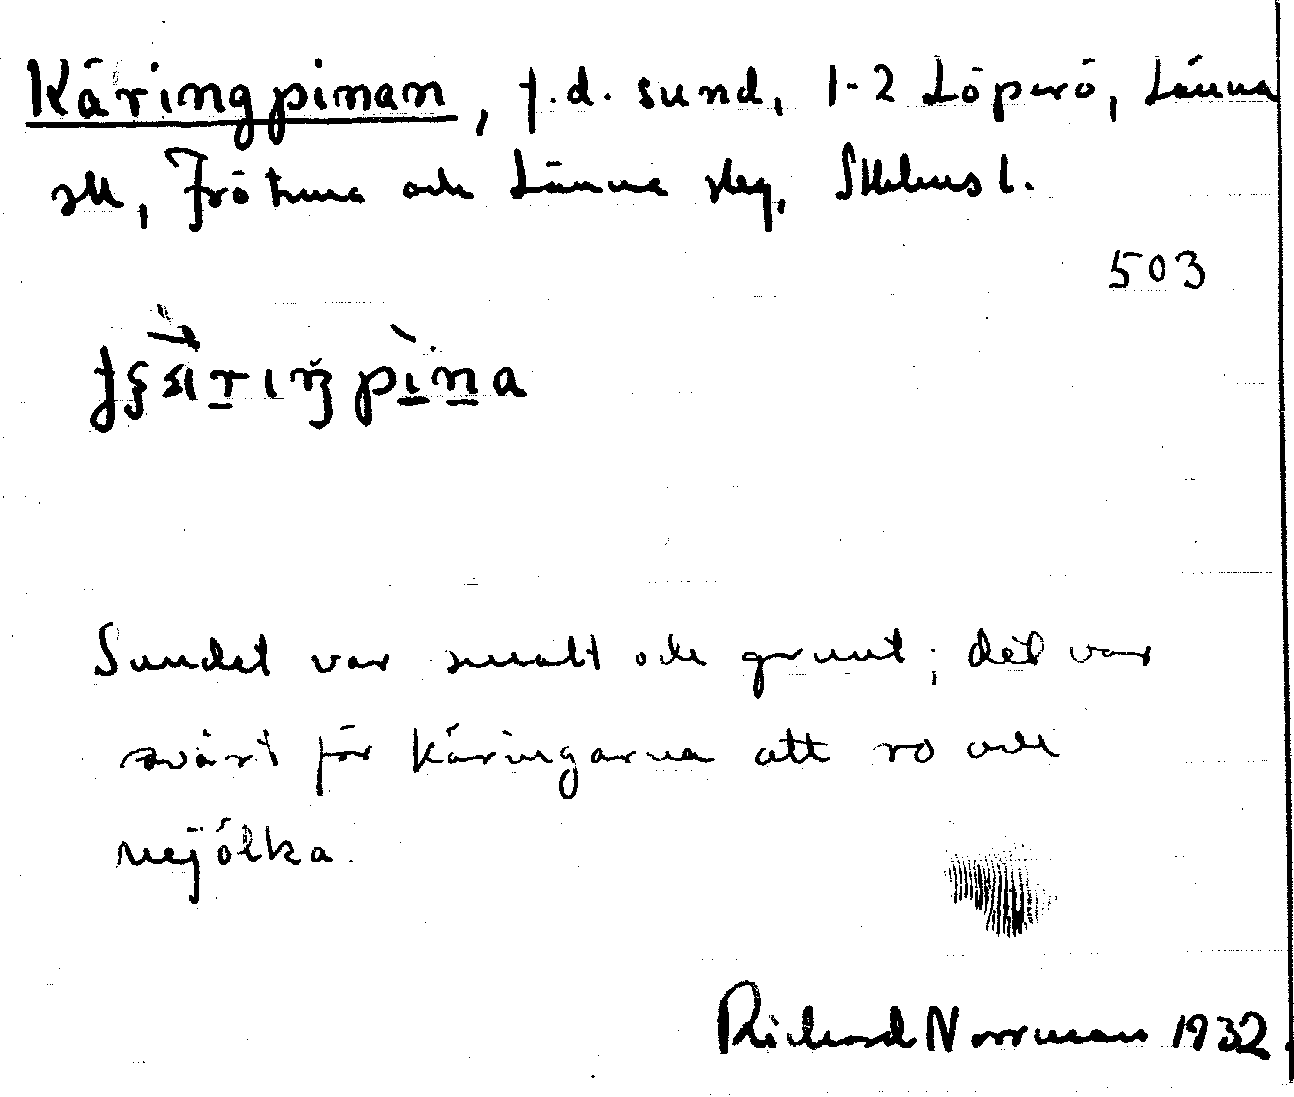 Käringpinan, f.d. sund, 1-2 Löparö, Länna
sk, Frötuna och Länna skg, Sthlms l.
503
Sundet var smalt och grunt; det var
svårt för käringarna att ro och
mjölka.
Richard Norrman 1932.